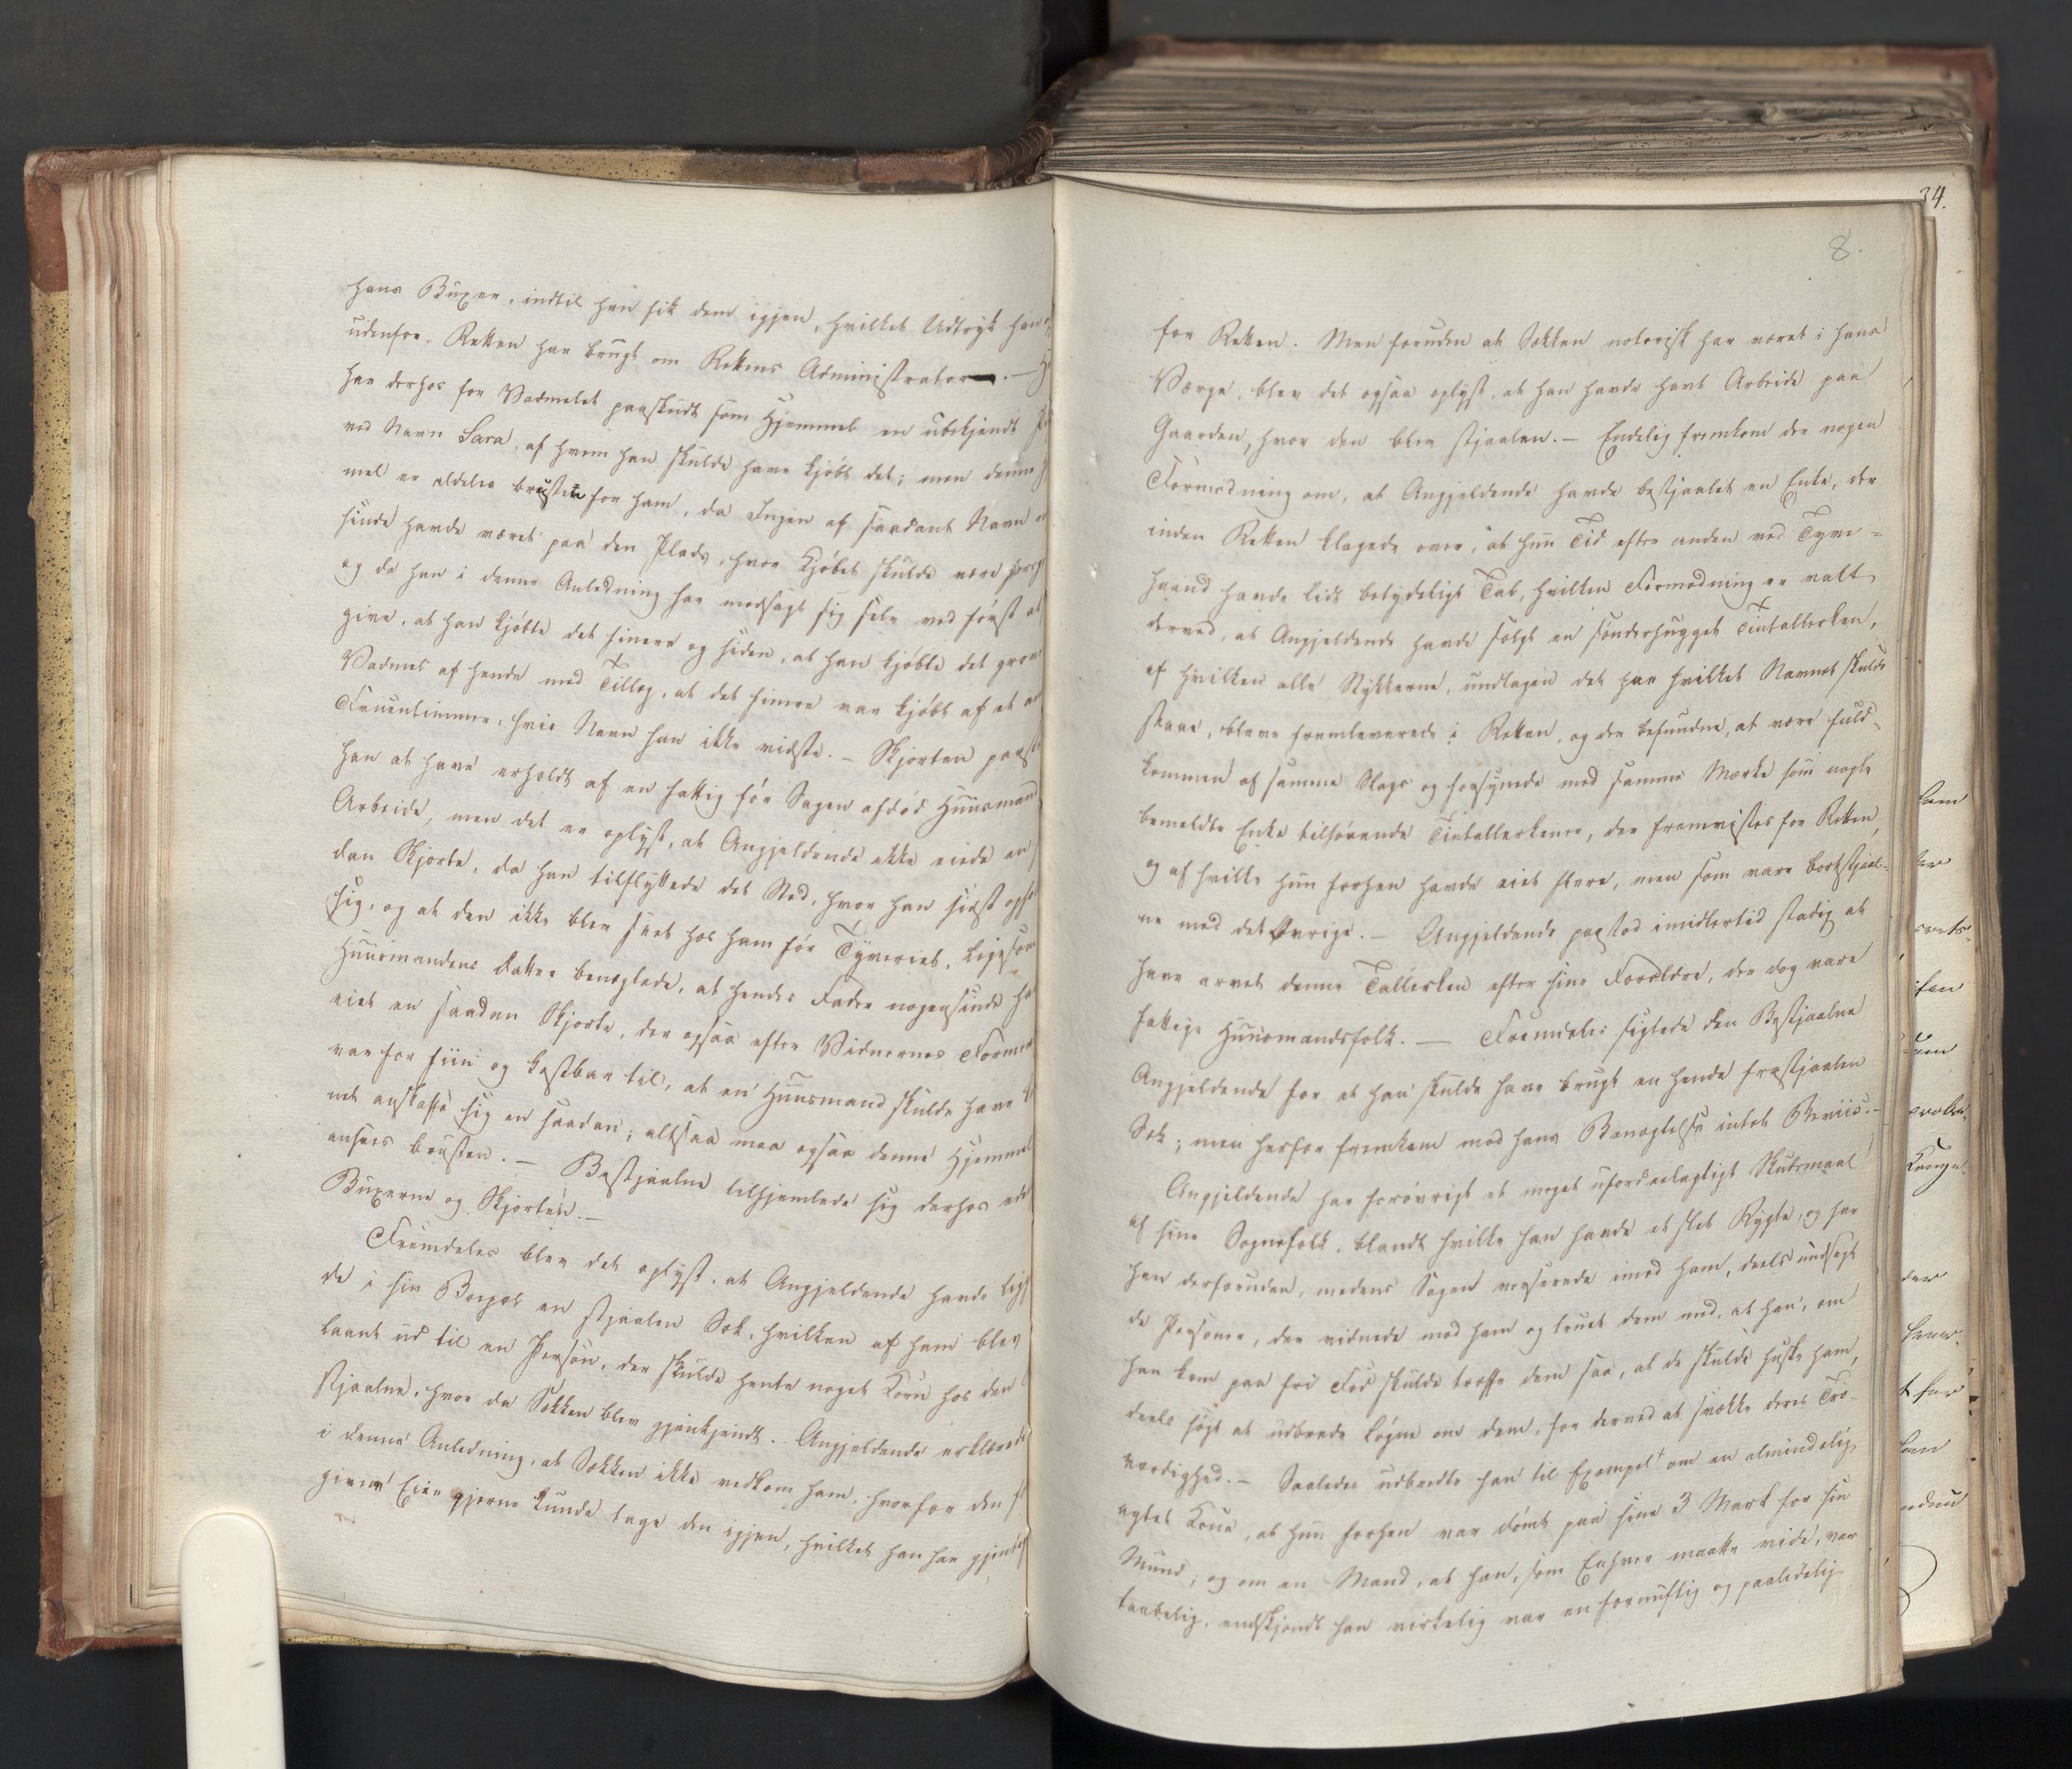 hans Buxer, indtil han fik dem igjen, hvilket Udtryk han
udenfor Retten har brugt om Rettens Administrator. —
har derhos for Vadmelet paaskudt som Hjemmel en ubekjendt
ved Navn Sara, af hvem han skulde have kjöbt det; men denne
mel er aldeles brusten for ham, da Ingen af saadant Navn
sinde havde været paa den Plads, hvor Kjöbet skulde være
og da han i denne Anledning har modsagt sig selv ved först at
give, at han kjöbte det finere og siden, at han kjöbte det
Vadmel af hende med Tillæg, at det finere var kjöbt af et
Fruentimmer, hvis Navn han ikke vidste. — Skjorten
han at have erholdt af en fattig för Sagen afdöd Huusmand
Arbeide, men det er oplyst, at Angjeldende ikke eiede en
dan Skjorte, da han tilflyttede det Sted, hvor han sidst
sig, og at den ikke blev seet hos ham för Tyveriet, ligesom
Huusmandens Datter benægtede, at hendes Fader nogensinde
eiet en saadan Skjorte, der ogsaa efter Vidnernes
var for fiin og kostbar til, at en Huusmand skulde have
net anskaffe sig en saadan; altsaa maa ogsaa denne Hjemmel
ansees brusten. — Bestjaalne tilhjemlede sig derhos
Buxerne og Skjorten. —
Fremdeles blev det oplyst, at Angjeldende havde
de i sin Værge en stjaalen Sæk, hvilken af ham blev
laant ud til en Person, der skulde hente noget Korn hos den
stjaalne, hvor da Sækken blev gjenkjendt. Angjeldende erklærede
i denne Anledning, at Sækken ikke vedkom ham, hvorfor den
givne Eier gjerne kunde tage den igjen, hvilket han har
34.
8.
for Retten. Men foruden at Sækken notorisk har været i hans
Værge, blev det ogsaa oplyst, at han havde havt Arbeide paa
Gaarden, hvor den blev stjaalen. — Endelig fremkom der nogen
Formodning om, at Angjeldende havde bestjaalet en Enke, der
inden Retten klagede over, at hun Tid efter anden ved Tyve-
haand havde lidt betydeligt Tab, hvilken Formodning er vakt
derved, at Angjeldende havde solgt en sönderhugget Tintallerken,
af hvilken alle Stykkerne, undtagen det paa hvilket Navnet skulde
staae, bleve fremleverede i Retten, og der befundne, at være fuld-
kommen af samme Slags og forsynede med samme Mærke som nogle
bemeldte Enke tilhörende Tintallerkener, der fremvistes for Retten,
og af hvilke hun forhen havde eiet flere, men som vare bortstjaal-
ne med det Övrige. — Angjeldende paastod imidlertid stadig at
have arvet denne Tallerken efter sine Forældre, der dog vare
fattige Huusmandsfolk. — Fremdeles sigtede den Bestjaalne
Angjeldende for at han skulde have brugt en hende frastjaalen
Sæk; men herfor fremkom mod hans Benægtelse intet Beviis. —
Angjeldende har forövrigt et meget ufordeelagtigt Skudsmaal
af sine Sognefolk, blandt hvilke han havde et slet Rygte, og har
han derforuden, medens Sagen verserede imod ham, deels undsagt
de Personer, der vidnede mod ham og truet dem med, at han, om
han kom paa fri Fod skulde træffe dem saa, at de skulde huske ham,
deels sögt at udbrede Lögne om dem, for derved at svække deres Tro-
værdighed. — Saaledes udbredte han til Exempel om en almindelig
agtet Kone, at hun forhen var dömt paa sine 3 Mark for sin
Mund, og om en Mand, at han, som Enhver maatte vide, var
taabelig, endskjöndt han virkelig var en fornuftig og paalidelig